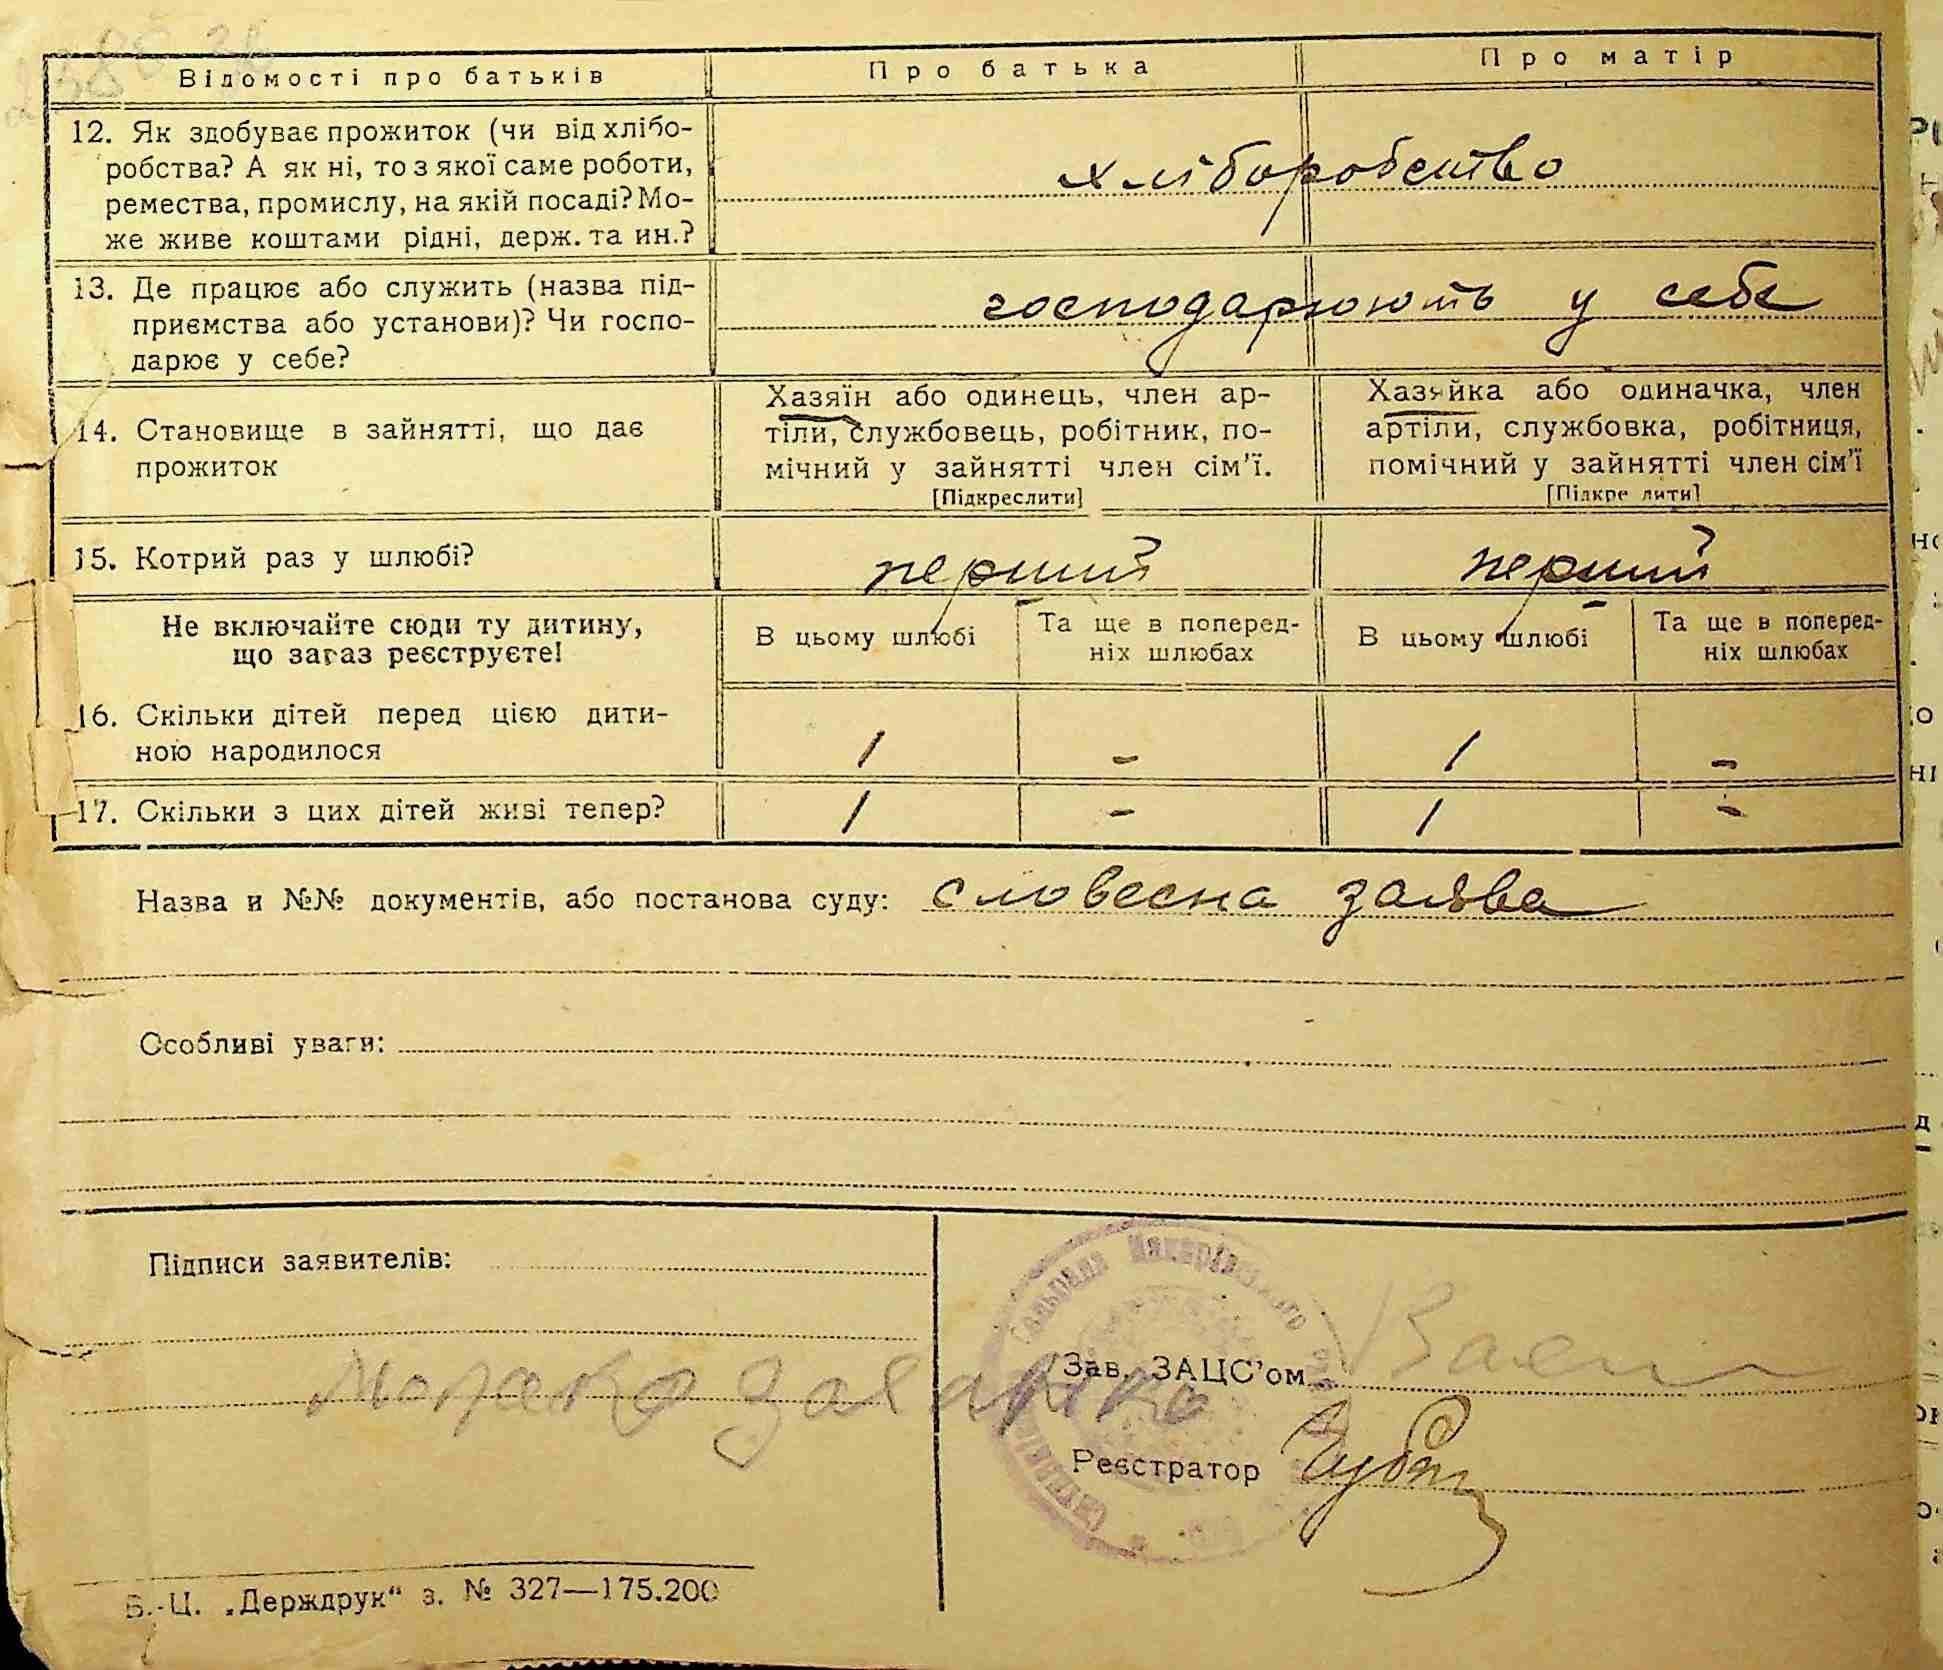 Відомості про батьків
Про батька
Про матір
12. Як здобуває прожиток (чи від хлібо-
робства? А як ні, то з якої саме роботи,
ремества, промислу, на якій посаді? Мо-
же живе коштами рідні, держ. та ин.?
хліборобство
13. Де працює або служить (назва під-
приємства або установи)? Чи госпо-
дарює у себе?
господарюють у себе
14. Становище в зайнятті, що дає
прожиток
Хазяїн або одинець, член ар-
тіли, службовець, робітник, по-
мічний у зайнятті член сім'ї.
[Підкреслити]
Хазяйка або одиначка, член
артіли, службовка, робітниця,
помічний у зайнятті член сім'ї
[Підкре лити]
15. Котрий раз у шлюбі?
перший
перший
Не включайте сюди ту дитину,
що зараз реєструєте!
В цьому шлюбі
Та ще в поперед-
ніх шлюбах
В цьому шлюбі
Та ще в поперед-
ніх шлюбах
16. Скільки дітей перед цією дити-
ною народилося
1 - 1 -
17. Скільки з цих дітей живі тепер?
1 - 1 -
Назва и №№ документів, або постанова суду: словесна заява
Особливі уваги:
Підписи заявителів:
Зав. ЗАЦС'ом
Реєстратор
Б.-Ц. „Держдрук“ з. № 327—175.200